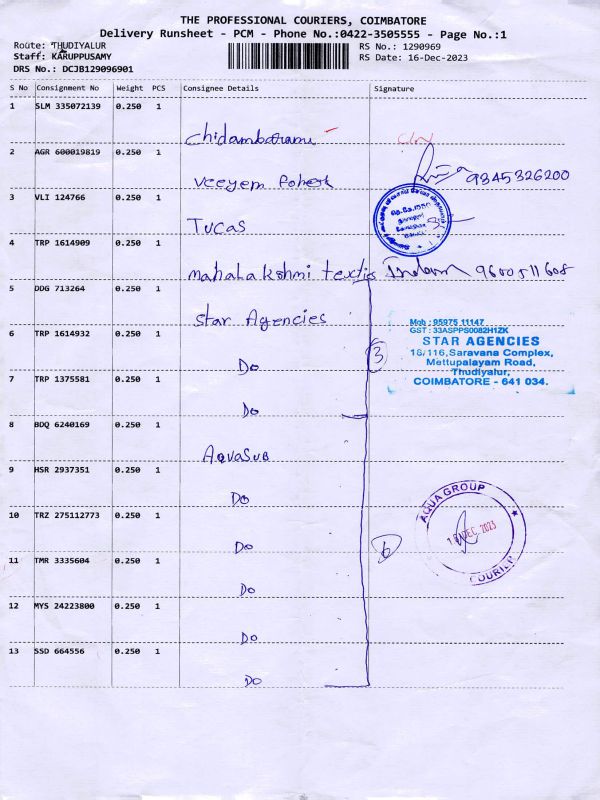 THE PROFESSIONAL COURIERS, COIMBATORE
Delivery Runsheet - PCM - Phone No.:0422-3505555 - Page No.:1
Route: THUDIYALUR
Staff: KARUPPUSAMY
DRS No.: DCJB129096901
RS No.: 1290969
RS Date: 16-Dec-2023
S No Consignment No Weight PCS Consignee Details Signature
1 SLM 335072139 0.250 1
Chidambaram
2 AGR 600019819 0.250 1
Veeyem 9345326200
3 VLI 124766 0.250 1
TUCAS
4 TRP 1614909 0.250 1
mahalakshmi textis 9600511608
5 DDG 713264 0.250 1
Star Agencies
Mob : 95975 11147
GST : 33ASPPS0082H1ZK
STAR AGENCIES
18/116,Saravana Complex,
Mettupalayam Road,
Thudiyalur,
COIMBATORE - 641 034.
6 TRP 1614932 0.250 1
Do 3
7 TRP 1375581 0.250 1
Do
8 BDQ 6240169 0.250 1
AQUASUB
9 HSR 2937351 0.250 1
Do
AQUA GROUP
16 DEC 2023
COURIER
10 TRZ 275112773 0.250 1
Do 6
11 TMR 3335604 0.250 1
Do
12 MYS 24223800 0.250 1
Do
13 SSD 664556 0.250 1
Do